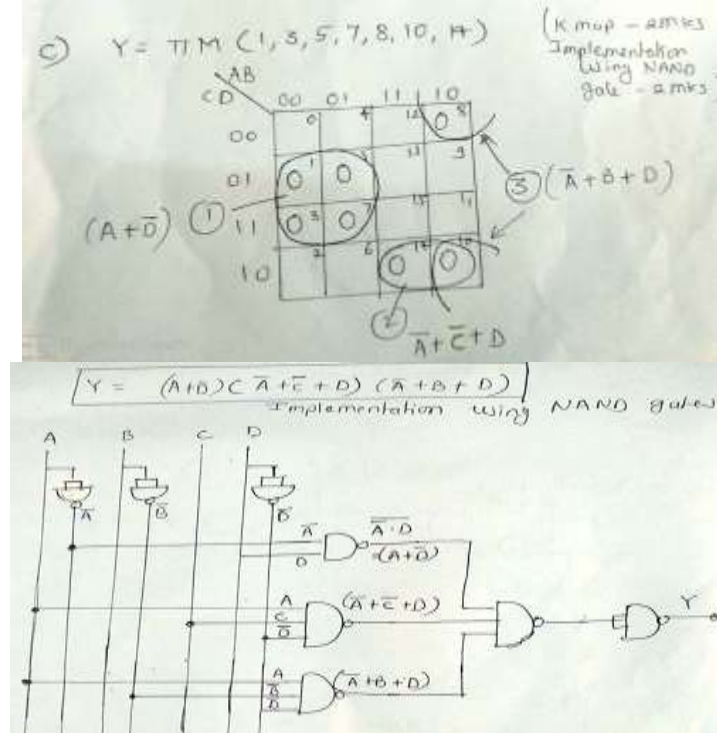 C) Y = π M (1, 3, 5, 7, 8, 10, 14)
(K map - 2mks
Implementation
using NAND
gate - 2mks
AB
CD 00 01 11 10
00 0 4 12 0 8
01 0 1 0 13 9
(A+D̅) 1 11 0 3 0 7 15 11
10 2 6 0 14 0 10
3 (A̅+B+D)
2
A̅+C̅+D
Y = (A+D̅)( A̅+C̅+D) (A̅+B+D)
Implementation using NAND gates
A B C D
A̅ B̅ D̅
A̅
D
A̅·D
=(A+D̅)
A
C
D̅
(A̅+C̅+D)
Y
A
B̅
D̅
(A̅+B+D)